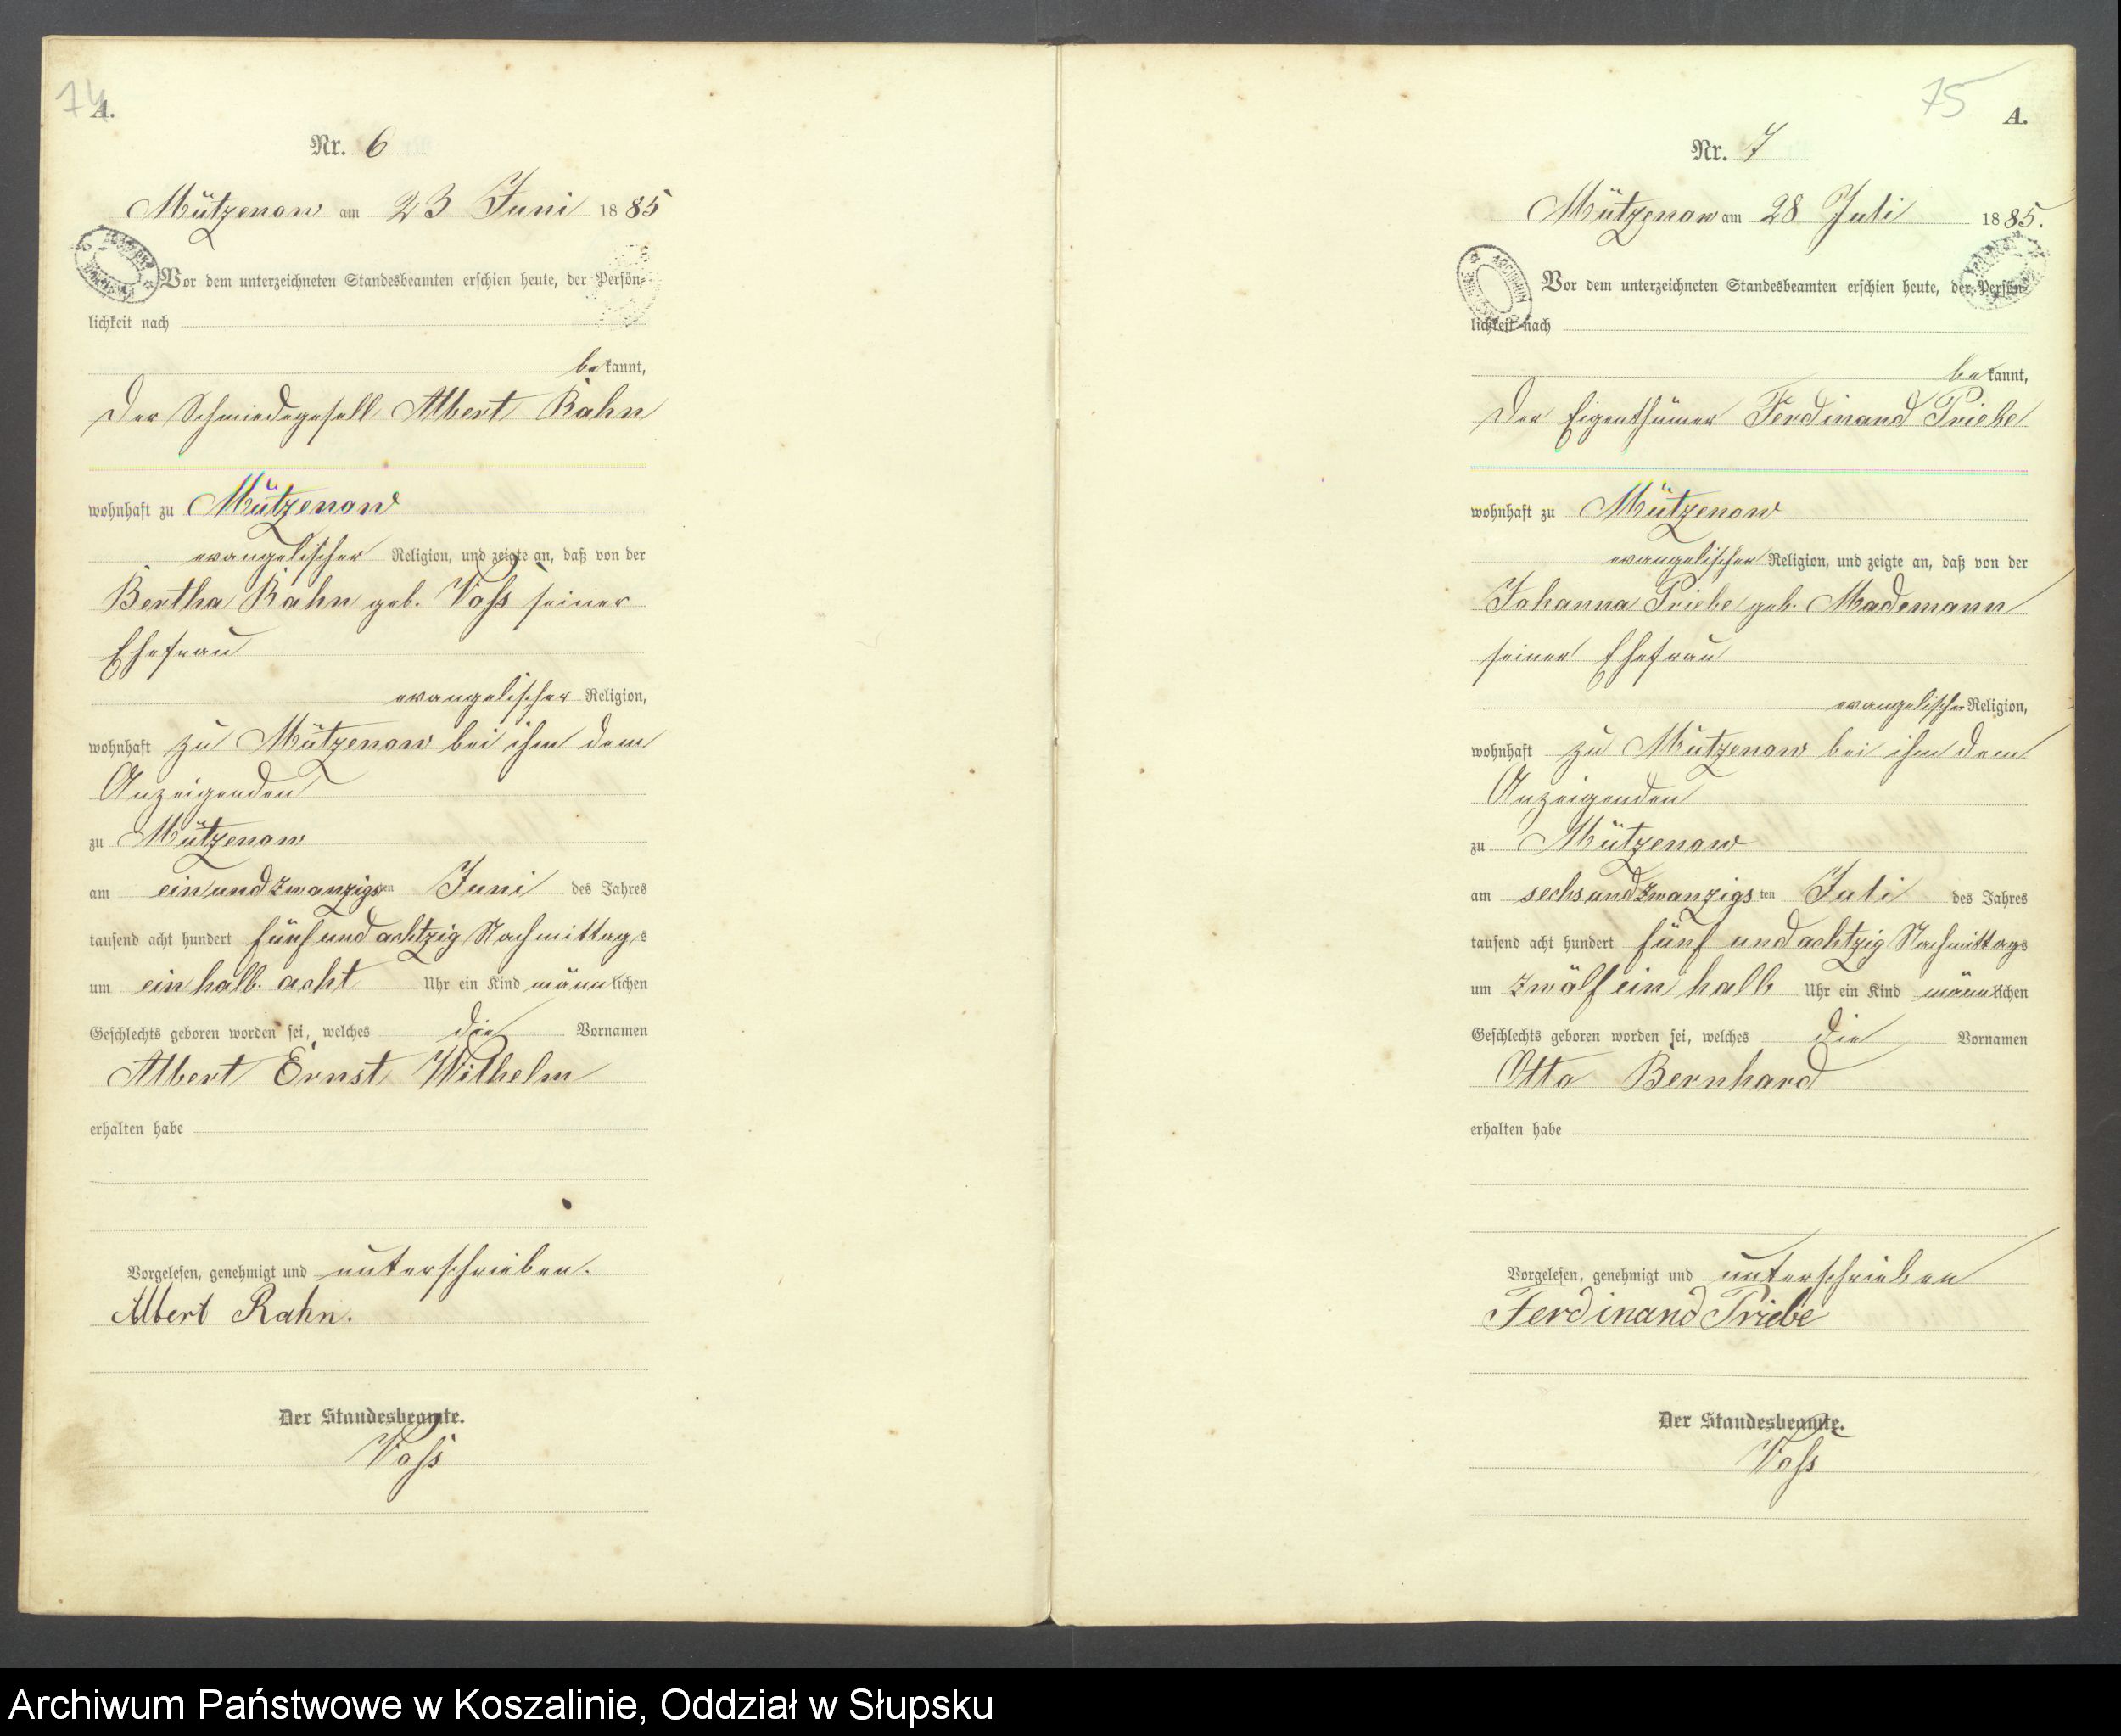 74
A.
Nr. 6
Mützenow am 23 Juni 1885
Vor dem unterzeichneten Standesbeamten erschien heute, der Persön-
lichkeit nach
bekannt,
der Schmiedegesell Albert Rahn
wohnhaft zu Mützenow
evangelischer Religion, und zeigte an, daß von der
Bertha Rahn geb. Voss seiner
Ehefrau
evangelischer Religion,
wohnhaft zu Mützenow bei ihm dem
Anzeigenden
zu Mützenow
am einundzwanzigsten Juni des Jahres
tausend acht hundert fünf und achtzig Nachmittags
um ein halb. acht Uhr ein Kind männlichen
Geschlechts geboren worden sei, welches die Vornamen
Albert Ernst Wilhelm
erhalten habe
Vorgelesen, genehmigt und unterschrieben.
Albert Rahn.
Der Standesbeamte.
Voss
75
A.
Nr. 7
Mützenow am 28 Juli 1885.
Vor dem unterzeichneten Standesbeamten erschien heute, der Persön-
lichkeit nach
bekannt,
der Eigenthümer Ferdinand Priebe
wohnhaft zu Mützenow
evangelischer Religion, und zeigte an, daß von der
Johanna Priebe geb. Mademann
seiner Ehefrau
evangelischer Religion,
wohnhaft zu Mützenow bei ihm dem
Anzeigenden
zu Mützenow
am sechsundzwanzigsten Juli des Jahres
tausend acht hundert fünf und achtzig Nachmittags
um zwölf ein halb Uhr ein Kind männlichen
Geschlechts geboren worden sei, welches die Vornamen
Otto Bernhard
erhalten habe
Vorgelesen, genehmigt und unterschrieben
Ferdinand Priebe
Der Standesbeamte.
Voss
Archiwum Państwowe w Koszalinie, Oddział w Słupsku